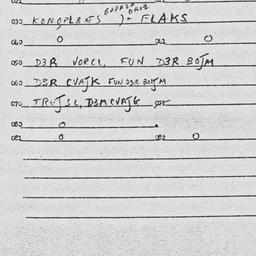 030 KONOPLBAFS )+ FLAKS
040 O 042 O
050 D3R VORCL, FUN D3R BOJM
060 D3R CVAJK FUN D3R BOJM
070 TREJSL, D3M CVAJG 072
080 O
081 O 082 O